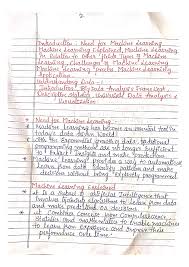 2
Introduction: Need for Machine Learning
Machine Learning Explained, Machine Learning
In Relation to other fields, Types of Machine
Learning, Challenges of Machine Learning
Machine Learning Process, Machine Learning
Application
Understanding Data:-
Introduction, Big Data Analysis Framework
Descriptive Statistics, Univariate Data Analysis &
Visualization
Need for Machine Learning:-
Machine Learning has become an essential tool in
today's data driven World
with the Exponential growth of data, traditional
programming methods are no longer sufficient
to Extract Insights and make Predictions.
Machine Learning provides a way to automatically
learn from data, identify patterns and make
decisions without being Explicitly programmed
Machine Learning Explained
It is a Subset of Artificial Intelligence that
Involves training algorithms to learn from data
and make predictions or decisions
It Combines Concepts from Computer Science
Statistics and mathematics to Enable machines
to learn from Experience and Improve their
performance Over time.